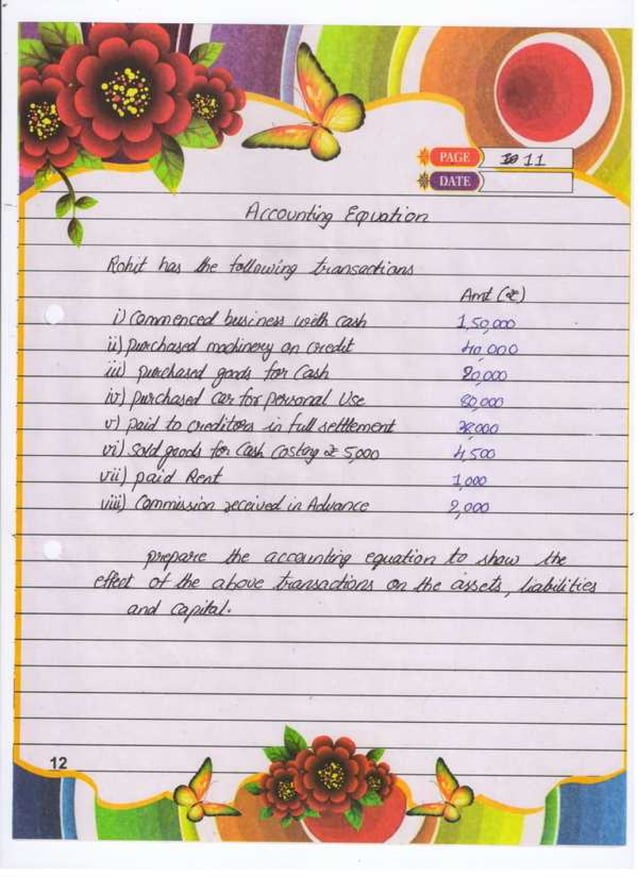 PAGE 11
DATE
Accounting Equation
Rohit has the following transactions
Amt (₹)
i) Commenced business with cash 1,50,000
ii) purchased machinery on credit 40,000
iii) purchased goods for cash 20,000
iv) purchased car for personal Use 80,000
v) paid to creditors in full settlement 38,000
vi) sold goods for cash costing ₹ 5,000 4,500
vii) paid Rent 1,000
viii) Commission received in Advance 2,000
prepare the accounting equation to show the
effect of the above transactions on the assets, liabilities
and capital.
12